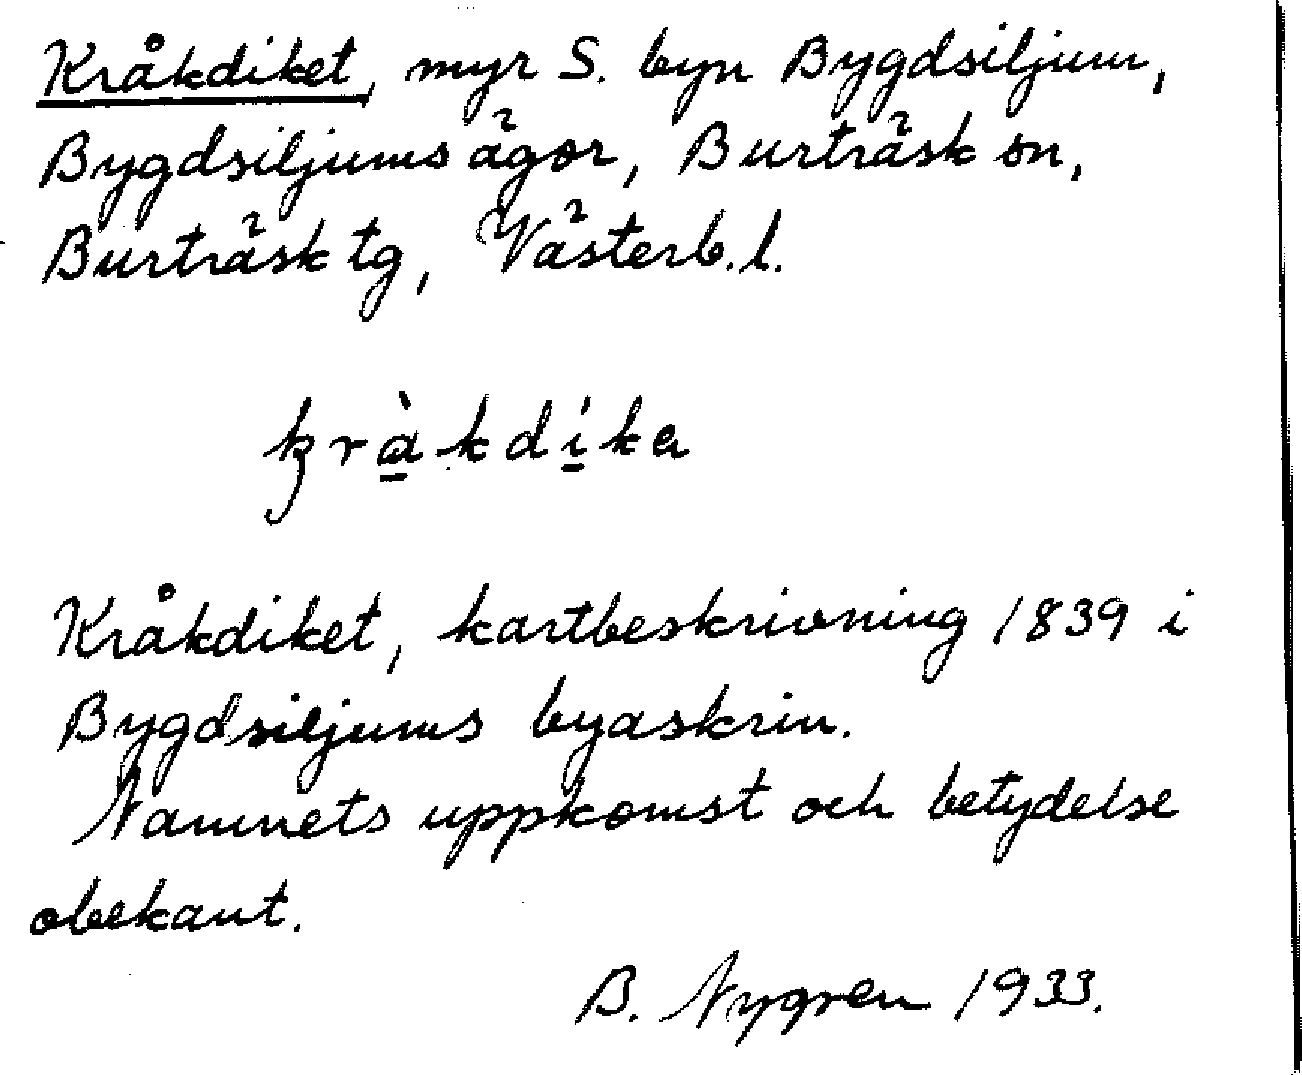 Kråkdiket, myr S. byn Bygdsiljum,
Bygdsiljums ägor, Burträsk sn,
Burträsk tg, Västerb. l.
kràkdíka
Kråkdiket, kartbeskrivning 1839 i
Bygdsiljums byaskrin.
Namnets uppkomst och betydelse
obekant.
B. Nygren 1933.